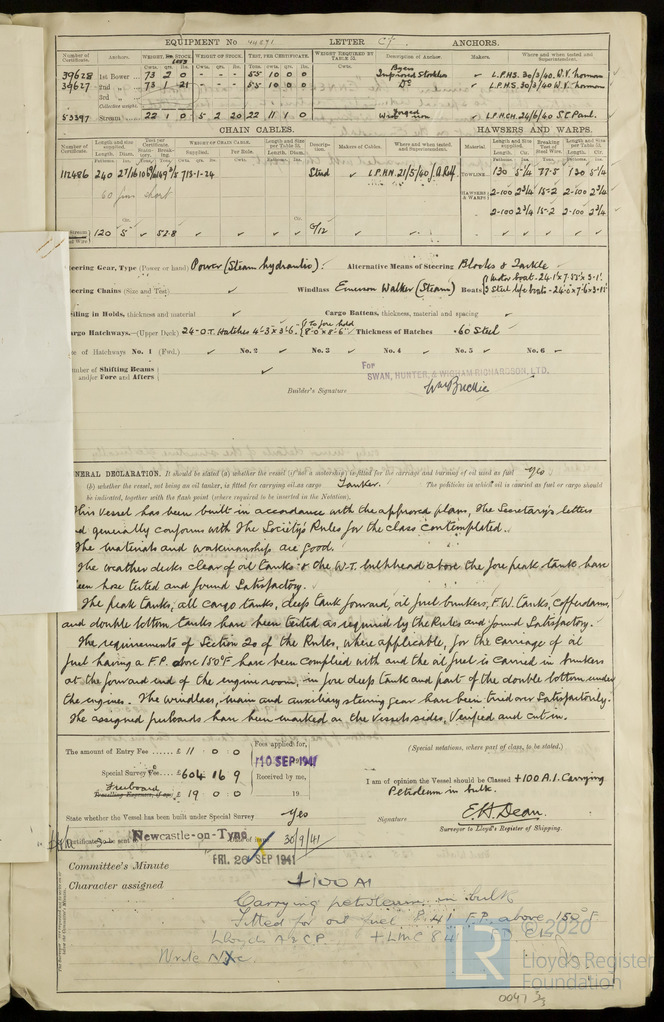 EQUIPMENT No 44271 LETTER C† ANCHORS.
Number of Certificate. Anchors. WEIGHT, EX STOCK WEIGHT OF STOCK. TEST, PER CERTIFICATE. WEIGHT REQUIRED BY TABLE 53. Description of Anchor. Makers. Where and when tested and Superintendent.
Cwts. qrs. lbs. Cwts. qrs. lbs. Tons. cwts. qrs. lbs. Cwts.
39628 1st Bower 73 2 0 - - - 55 10 0 0 Byers Improved Stockless ✓ L.P.H.S. 30/3/40. W.Y. Thomson
39627 2nd „ 73 1 21 - - - 55 10 0 0 Do ✓ L.P.H.S. 30/3/40. W.Y. Thomson
3rd „
Collective weight.
53397 Stream 22 1 0 5 2 20 22 11 1 0 Forged ✓ L.P.H.CH. 24/6/40 S.C. Paul.
CHAIN CABLES. HAWSERS AND WARPS.
112486 240 27/16 713-1-24 Stud ✓ L.P.H.N. 21/5/40 TOWLINE 130 5 1/4 77.5 130 5 1/4
60 fms short
HAWSERS & WARPS 2-100 2 3/4 15-2 2-100 2 3/4
2-100 2 3/4 15-2 2-100 2 3/4
Stream 120 5 ✓ 52.8 ✓ 6/12 ✓
eering Gear, Type (Power or hand) Power (Steam hydraulic). Alternative Means of Steering Blocks & Tackle
eering Chains (Size and Test) ✓ Windlass Emerson Walker (Steam) Boats 1 Motor boat - 24.1 x 7.55 x 3.1
3 Steel life boats - 24.0 x 7.6 x 3.15
eiling in Holds, thickness and material ✓ Cargo Battens, thickness, material and spacing ✓
argo Hatchways.—(Upper Deck) 24-O.T. Hatches 4'-3 x 3'-6. 1 To fore hold 8'-0" x 8'-6" Thickness of Hatches .60 Steel
e of Hatchways No. 1 (Fwd.) ✓ No. 2 ✓ No. 3 ✓ No. 4 ✓ No. 5 ✓ No. 6 ✓
mber of Shifting Beams and/or Fore and Afters ✓
For
SWAN, HUNTER, & WIGHAM RICHARDSON, LTD.
Builder's Signature Wm Buckie
NERAL DECLARATION. It should be stated (a) whether the vessel (if not a motorship) is fitted for the carriage and burning of oil used as fuel Yes
(b) whether the vessel, not being an oil tanker, is fitted for carrying oil as cargo Tanker. The positions in which oil is carried as fuel or cargo should
be indicated, together with the flash point (where required to be inserted in the Notation).
This Vessel has been built in accordance with the approved plans, the Secretary's letters
nd generally conforms with the Society's Rules for the class contemplated.
The materials and workmanship are good.
The weather decks clear of oil tanks & the W.T. bulkhead above the fore peak tank have
been hose tested and found Satisfactory.
The peak tanks, all cargo tanks, deep tank forward, oil fuel bunkers, F.W. tanks, cofferdams,
and double bottom tanks have been tested as required by the Rules and found Satisfactory.
The requirements of Section 20 of the Rules, where applicable, for the carriage of oil
fuel having a F.P. above 150°F have been complied with and the oil fuel is carried in bunkers
at the forward end of the engine room, in fore deep tank and part of the double bottom under
the engines. The windlass, main and auxiliary steering gear have been tried over Satisfactorily.
The assigned freeboards have been marked on the vessel's sides, verified and cut in.
The amount of Entry Fee £ 11 0 0 Fees applied for, (Special notations, where part of class, to be stated.)
10 SEP 1941
Special Survey Fee £ 604 16 9 Received by me,
I am of opinion the Vessel should be Classed +100 A.1. Carrying
Freeboard
Travelling Expenses, if any £ 19 0 0 19
Petroleum in bulk.
State whether the Vessel has been built under Special Survey Yes
Signature E.H. Dean.
Surveyor to Lloyd's Register of Shipping.
Certificate to be sent Newcastle-on-Tyne Date of 30/9/41
FRI. 26 SEP 1941
Committee's Minute
Character assigned +100 A1
Carrying petroleum in bulk
Fitted for oil fuel 8.41 F.P. above 150°F
Lloyd's A & C P. + LMC 8.41
Write
LR
© 2020
Lloyd's Register
Foundation
0041 3/3